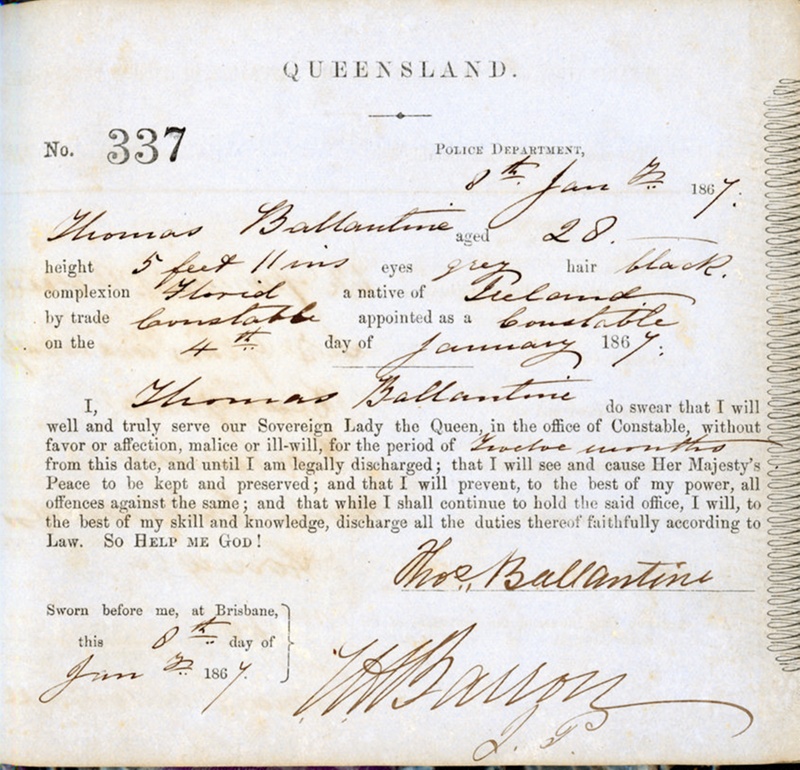 QUEENSLAND.
No. 337
POLICE DEPARTMENT,
8th Jan ry 1867.
Thomas Ballantine aged 28.
height 5 feet 11 ins eyes grey hair black.
complexion Florid a native of Ireland
by trade Constable appointed as a Constable
on the 4th day of January 1867.
I, Thomas Ballantine do swear that I will
well and truly serve our Sovereign Lady the Queen, in the office of Constable, without
favor or affection, malice or ill-will, for the period of Twelve months
from this date, and until I am legally discharged; that I will see and cause Her Majesty's
Peace to be kept and preserved; and that I will prevent, to the best of my power, all
offences against the same; and that while I shall continue to hold the said office, I will, to
the best of my skill and knowledge, discharge all the duties thereof faithfully according to
Law. SO HELP ME GOD!
Thos. Ballantine
Sworn before me, at Brisbane,
this 8th day of
Jan ry 1867.
Barron
J.P.